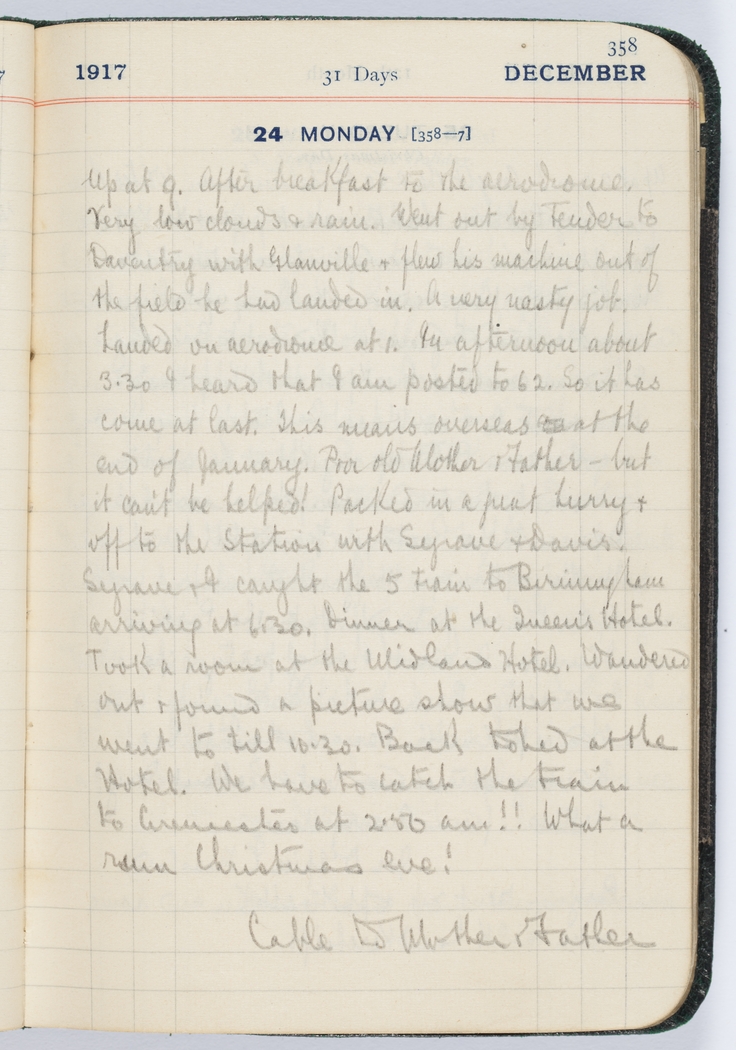 358
1917 31 Days DECEMBER
24 MONDAY [358—7]
Up at 9. After breakfast to the aerodrome.
Very low clouds & rain. Went out by Tender to
Daventry with Glanville & flew his machine out of
the field he had landed in. A very nasty job.
Landed on aerodrome at 1. In afternoon about
3.30 I heard that I am posted to 62. So it has
come at last. This means overseas at the
end of January. Poor old Mother & Father – but
it can't be helped! Packed in a great hurry &
off to the Station with Segrave & Davis.
Segrave & I caught the 5 train to Birmingham
arriving at 6.30. Dinner at the Queen's Hotel.
Took a room at the Midland Hotel. Wandered
out & found a picture show that we
went to till 10.30. Back to bed at the
Hotel. We have to catch the train
to Cirencester at 2.50 am!! What a
rum Christmas eve!
Cable to Mother & Father